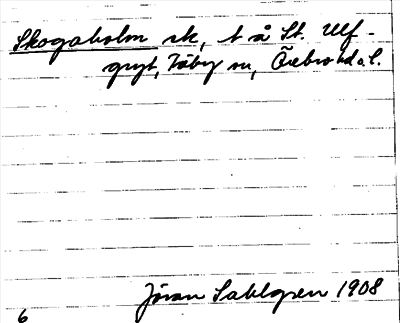 Skogaholm sk, t å St. Ulf-
gryt, Täby sn, Örebro hd o l.
Jöran Sahlgren 1908
6